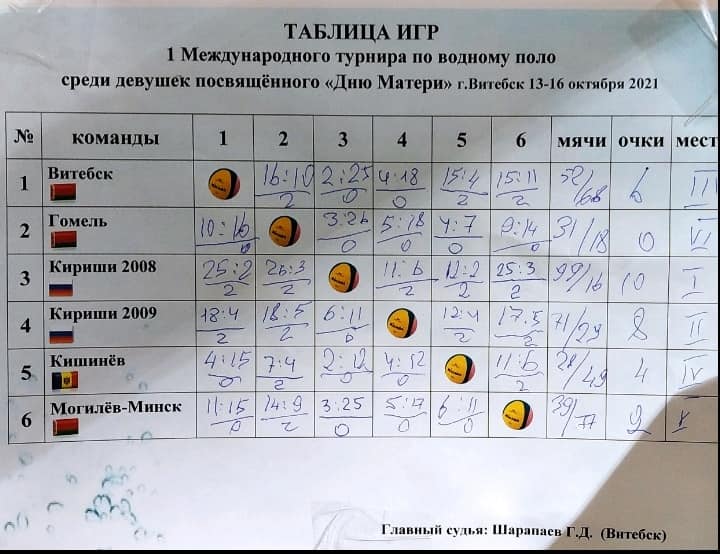 ТАБЛИЦА ИГР
1 Международного турнира по водному поло
среди девушек посвящённого «Дню Матери» г.Витебск 13-16 октября 2021
№ команды 1 2 3 4 5 6 мячи очки мест
1 Витебск 16:10 2 2:25 0 4:18 0 15:4 2 15:11 2 52/68 6 III
2 Гомель 10:16 0 3:26 0 5:18 0 4:7 0 9:14 0 31/ 0 VI
3 Кириши 2008 25:2 2 26:3 2 11:6 2 12:2 2 25:3 2 99/16 10 I
4 Кириши 2009 18:4 2 18:5 2 6:11 0 12:4 2 17:5 2 71/29 8 II
5 Кишинёв 4:15 0 7:4 2 2:12 0 4:12 0 11:6 2 28/49 4 IV
6 Могилёв-Минск 11:15 0 14:9 2 3:25 0 5:17 0 6:11 0 39/77 2 V
Главный судья: Шарапаев Г.Д. (Витебск)